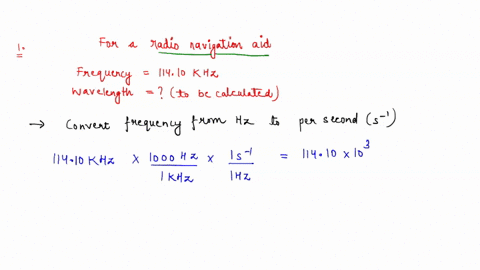 1.
For a radio navigation aid
Frequency = 114.10 KHz
Wavelength = ? (to be calculated)
→ Convert frequency from Hz to per second (s⁻¹)
114.10 KHz × 1000 Hz / 1 KHz × 1 s⁻¹ / 1Hz = 114.10 × 10³